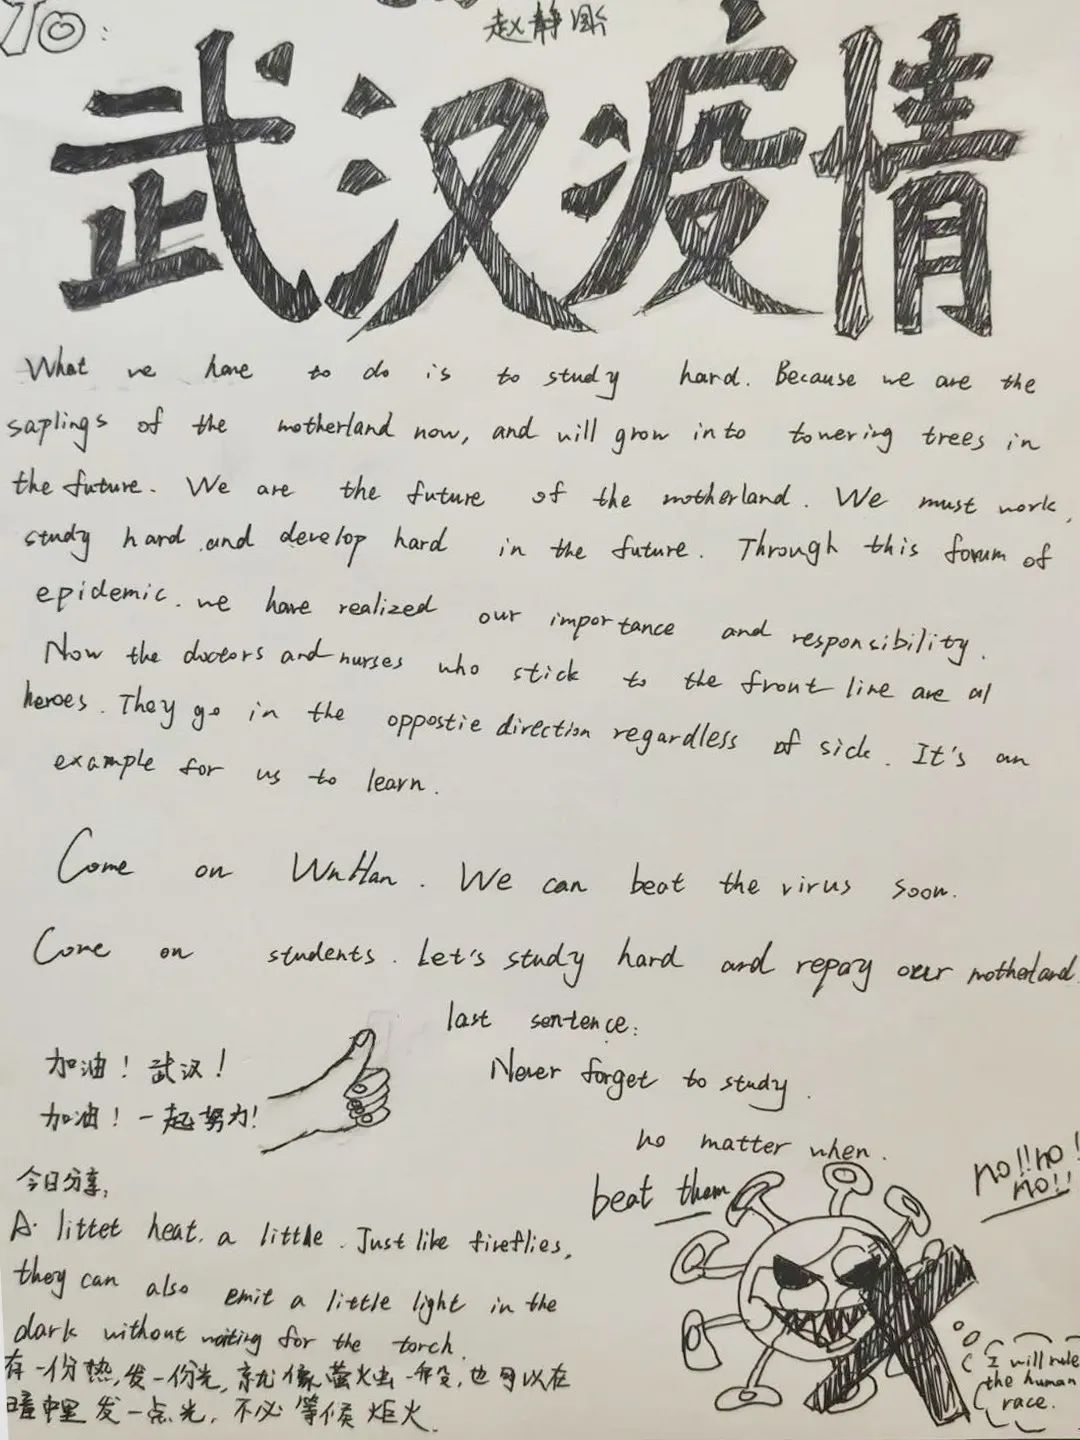 To:
赵静刚
武汉疫情
What we have to do is to study hard. Because we are the
saplings of the motherland now, and will grow into towering trees in
the future. We are the future of the motherland. We must work,
study hard and develop hard in the future. Through this forum of
epidemic. we have realized our importance and responsibility.
Now the doctors and nurses who stick to the front line are al
heroes. They go in the oppostie direction regardless of sick. It's an
example for us to learn.
Come on WuHan. We can beat the virus soon.
Come on students. Let's study hard and repay our motherland.
last sentence:
Never forget to study.
no matter when.
加油！武汉！
加油！一起努力！
beat them
no!!no!
no!!
今日分享:
A littet heat. a little. Just like fireflies,
they can also emit a little light in the
dark without waiting for the torch.
有一份热,发一份光,就像萤火虫一般,也可以在
暗里发一点光,不必等候炬火.
I will rule
the human
race.